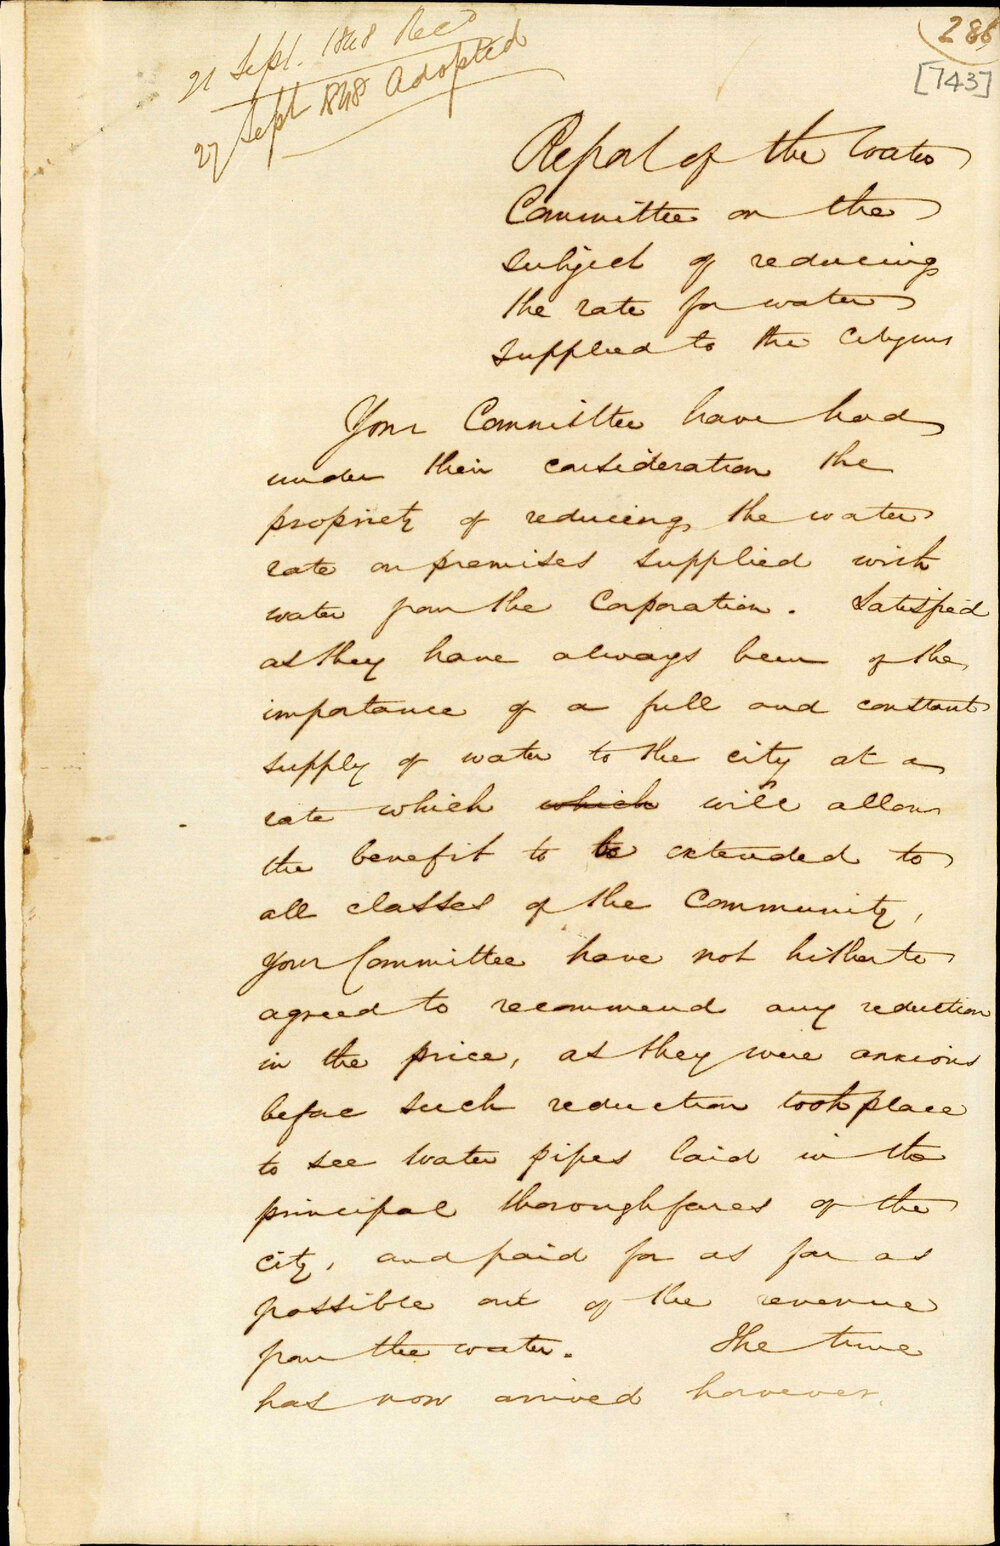 286
[743]
21 Sept. 1848 Recd
27 Sept 1848 Adopted
Report of the Water
Committee on the
subject of reducing
the rate for water
supplied to the Citizens
Your Committee have had
under their consideration the
propriety of reducing the water
rate on premises supplied with
water from the Corporation. Satisfied
as they have always been of the
importance of a full and constant
supply of water to the city at a
rate which which will allow
the benefit to be extended to
all classes of the Community,
your Committee have not hitherto
agreed to recommend any reduction
in the price, as they were anxious
before such reduction took place
to see water pipes laid in the
principal thoroughfares of the
city, and paid for as far as
possible out of the revenue
from the water. The time
has now arrived however